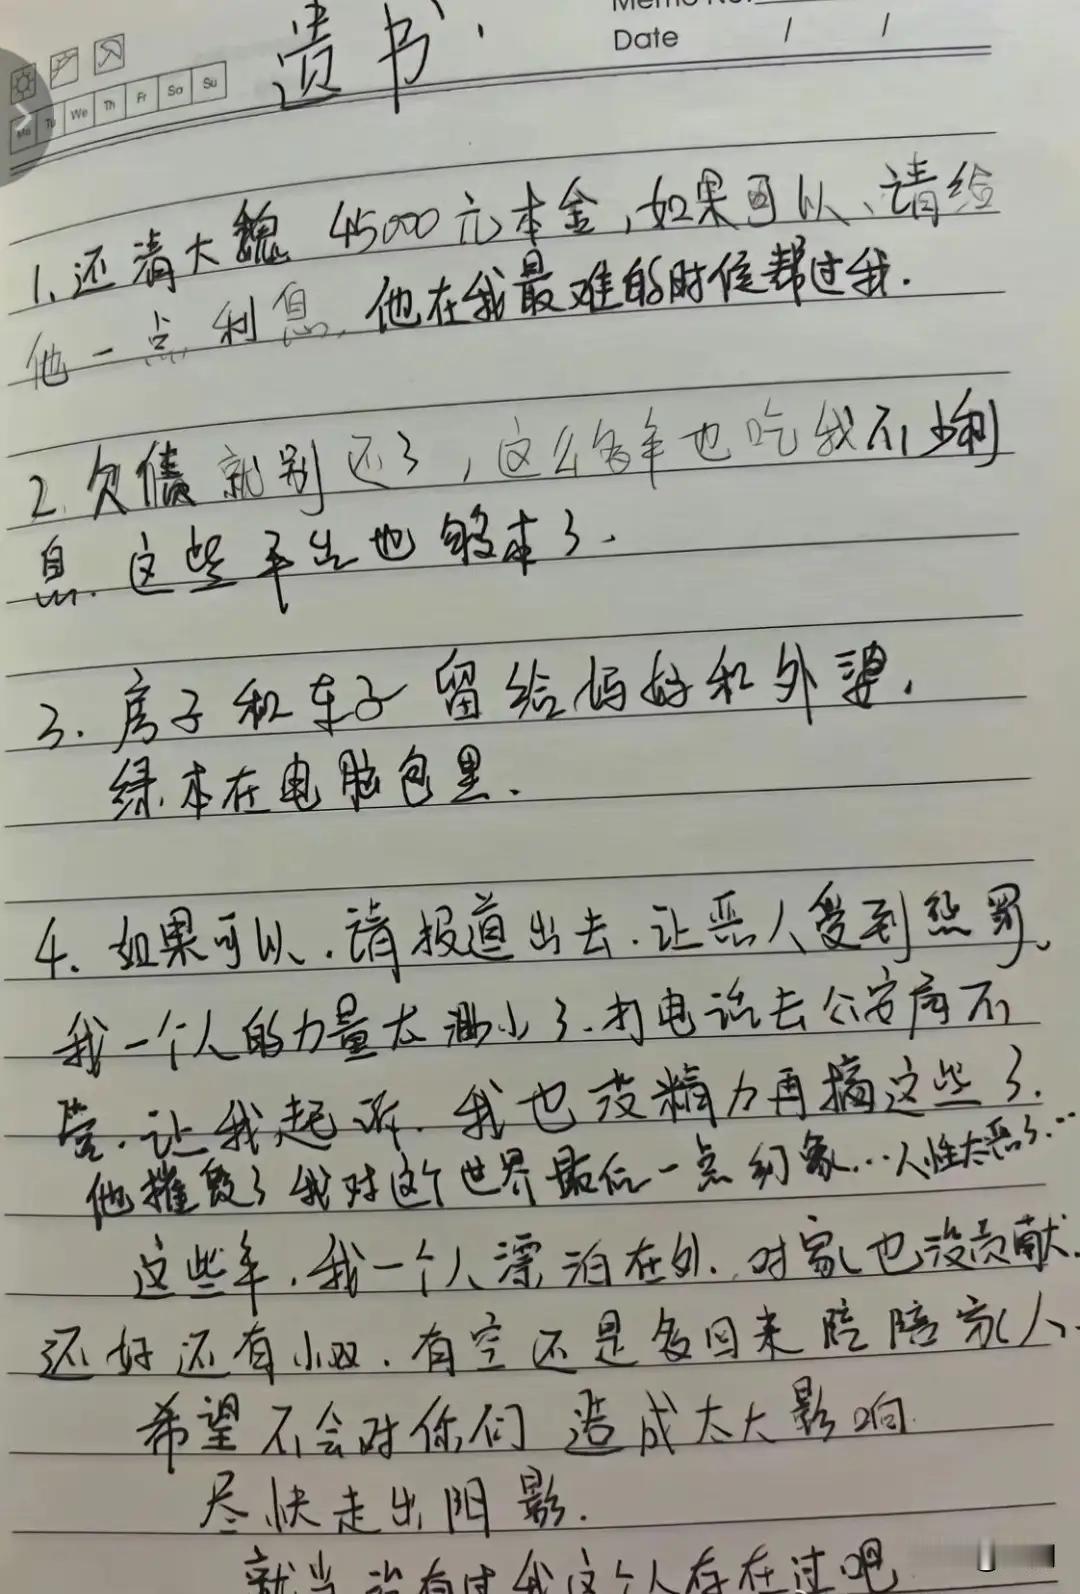 Memo No.
Date / /
Mo Tu We Th Fr Sa Su
遗书
1、还清大魏 45000元本金,如果可以、请给
他一点利息,他在我最难的时候帮过我.
2.欠债就别还了,这么多年也吃我不少利
息.这些年出也够本了.
3.房子和车子留给妈妈和外婆,
绿本在电脑包里.
4.如果可以.请报道出去.让恶人受到惩罚、
我一个人的力量太渺小了.打电话去公安局不
管.让我起诉.我也没精力再搞这些了.
他摧毁了我对这个世界最后一点幻象...人性太恶了...
这些年.我一个人漂泊在外.对家也没贡献.
还好还有小双.有空还是多回来陪陪家人.
希望不会对你们造成太大影响.
尽快走出阴影.
就当没有过我这个人存在过吧